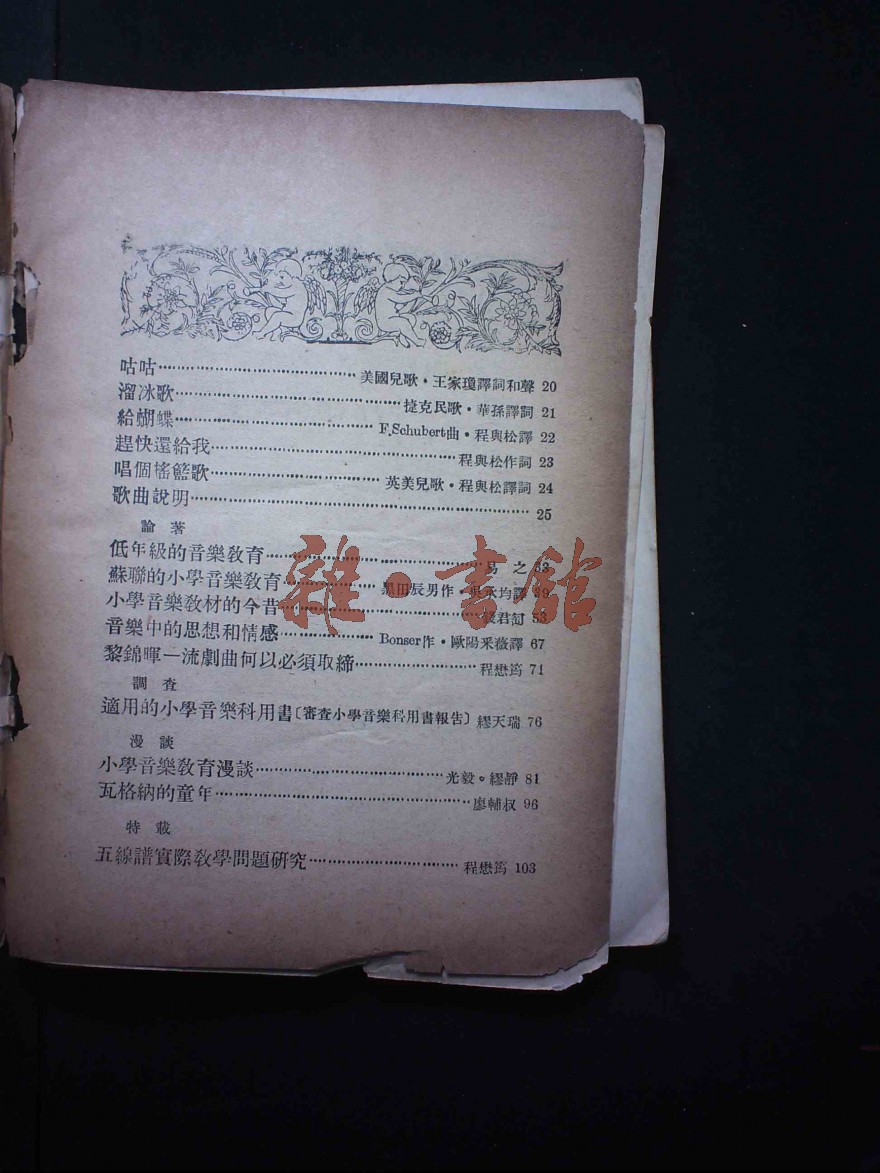 咕咕……美國兒歌・王家瓊譯詞和聲 20
溜冰歌……捷克民歌・華孫譯詞 21
給蝴蝶……F.Schubert曲・程與松譯 22
趕快還給我……程與松作詞 23
唱個榣籃歌……英美兒歌・程與松譯詞 24
歌曲說明……25
論著
低年級的音樂教育……易之
蘇聯的小學音樂教育……黑田辰男作・吳承均譯 39
小學音樂教材的今昔……錢君匋 53
音樂中的思想和情感……Bonser作・歐陽采薇譯 67
黎錦暉一流劇曲何以必須取締……程懋筠 71
調查
適用的小學音樂科用書〔審查小學音樂科用書報告〕繆天瑞 76
漫談
小學音樂教育漫談……光毅。繆靜 81
瓦格納的童年……廖輔叔 96
特載
五線譜實際教學問題研究……程懋筠 103
雜・書館